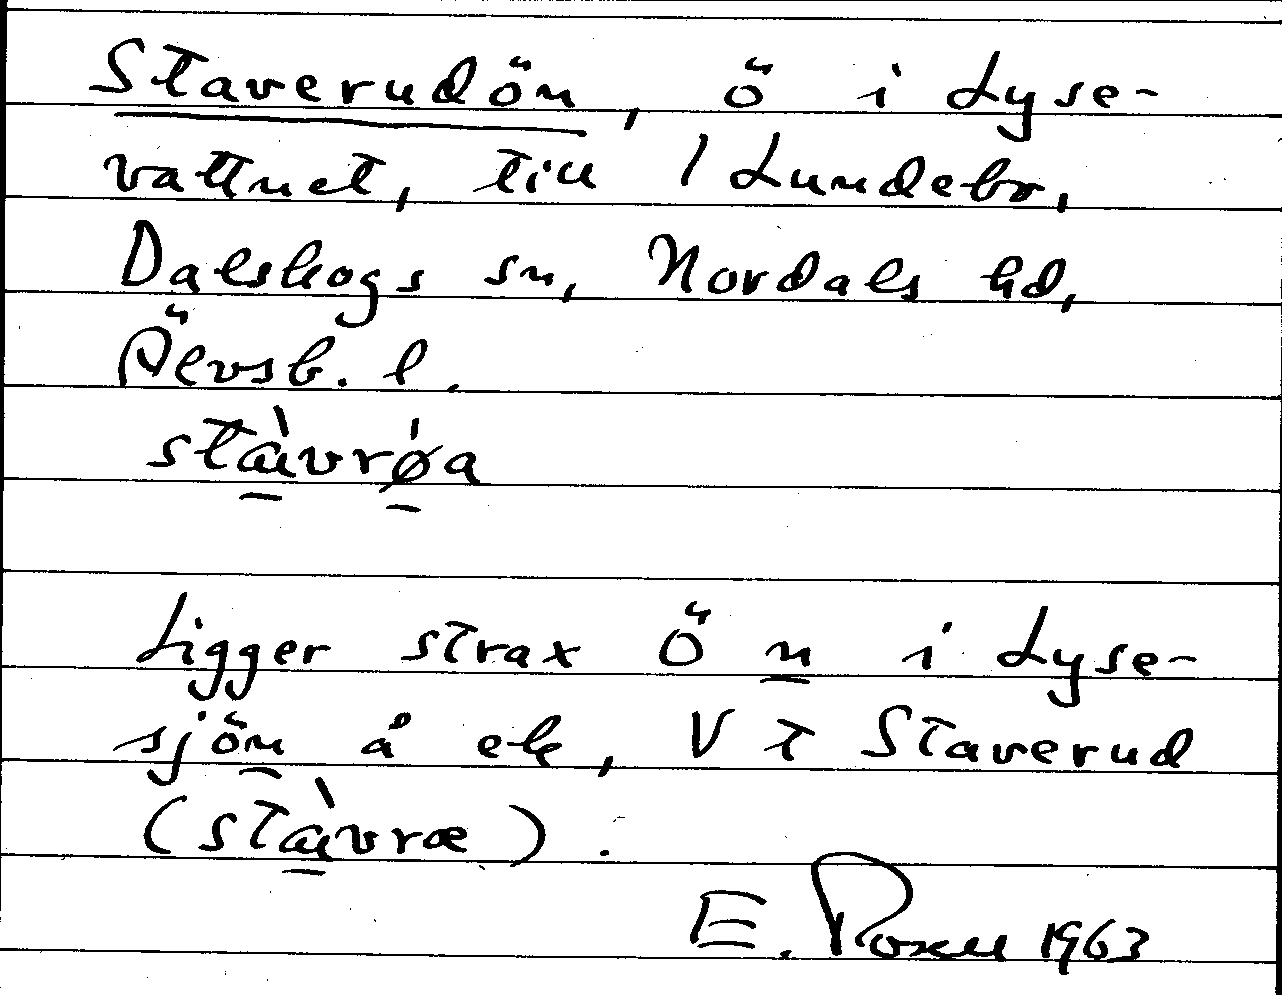 Staverudön, ö i Lyse-
vattnet, till 1 Lundebo,
Dalskogs sn, Nordals hd,
Älvsb. l.
stàvrǿa
Ligger strax Ö n i Lyse-
sjön å ek, V t Staverud
(stàvræ).
E. Rosell 1963